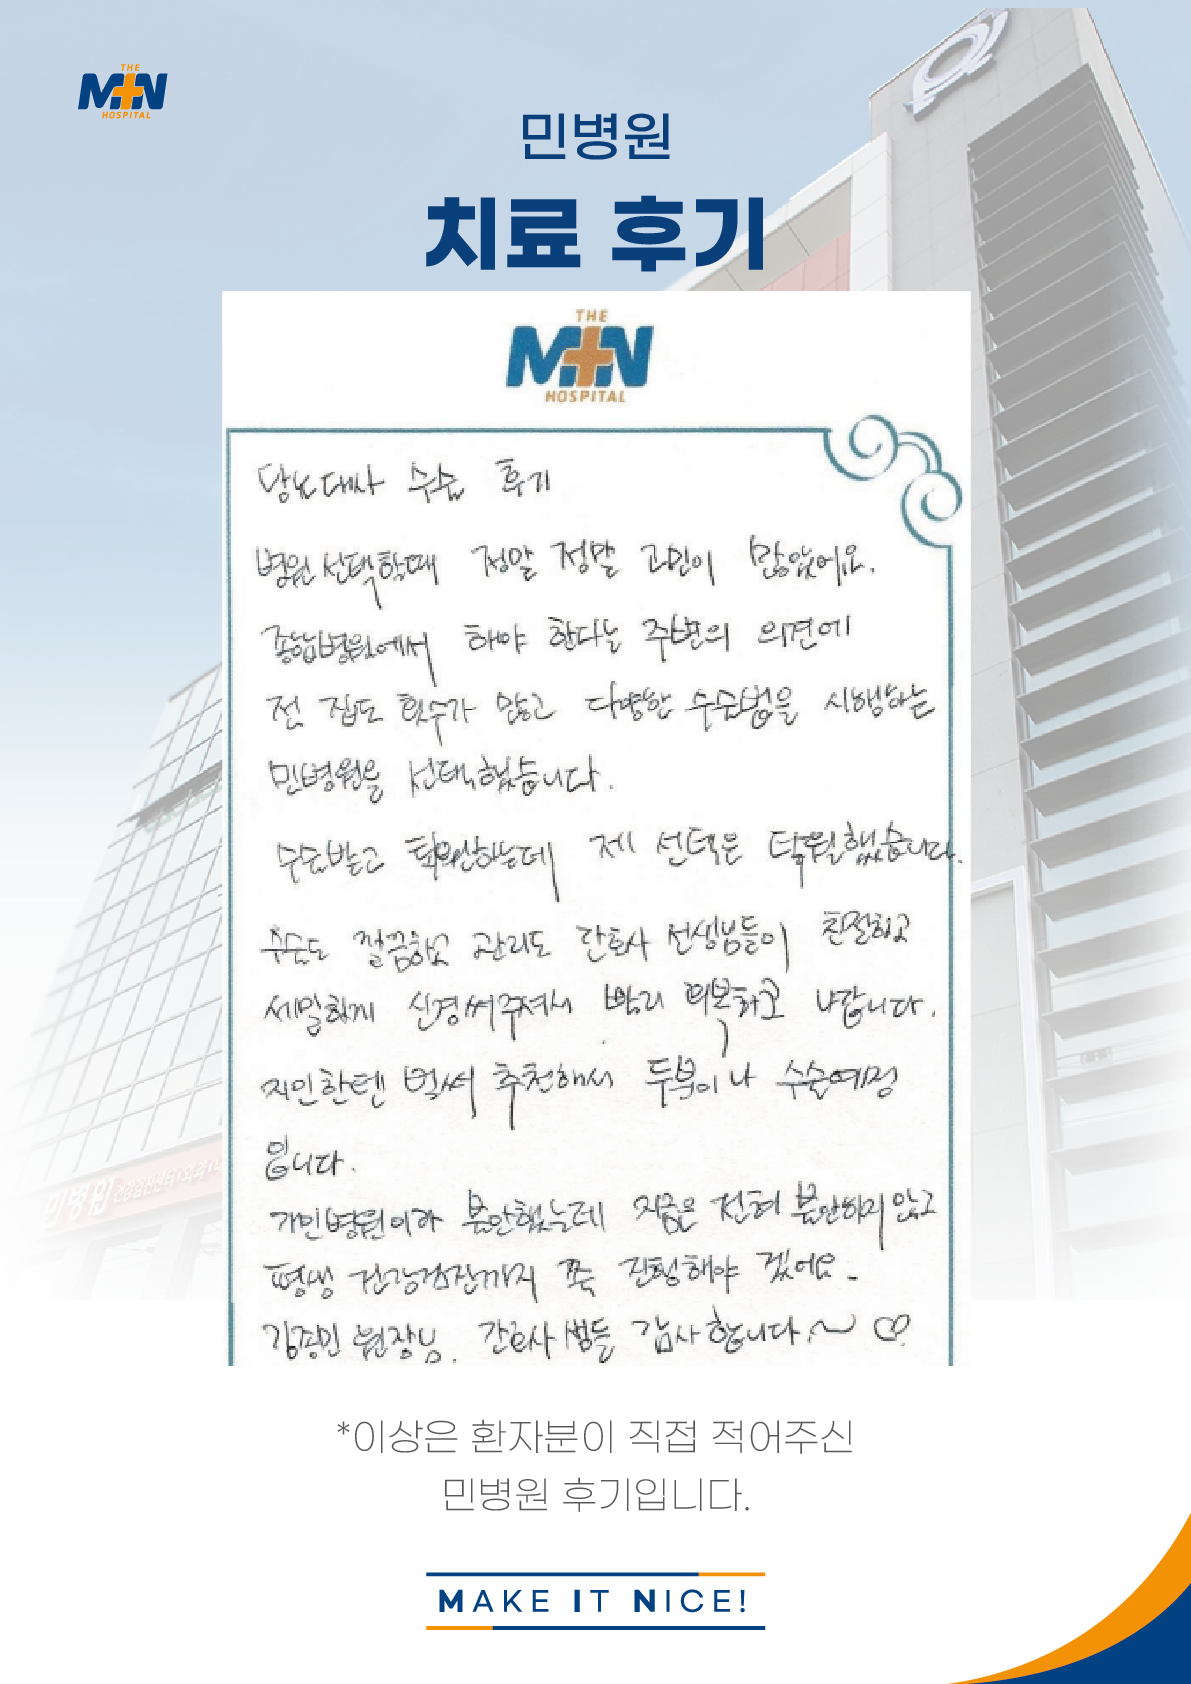 THE
MIN
HOSPITAL
민병원
치료 후기
THE
MIN
HOSPITAL
당뇨대사 수술 후기
병원 선택할때 정말 정말 고민이 많았어요.
종합병원에서 해야 한다는 주변의 의견에
전 집도 횟수가 많고 다양한 수술법을 시행하는
민병원을 선택했습니다.
수술받고 퇴원하는데 제 선택은 탁월했습니다.
수술도 깔끔하고 관리도 간호사 선생님들이 친절하고
세밀하게 신경써주셔서 빨리 회복하고 나갑니다.
지인한텐 벌써 추천해서 두분이나 수술예정
입니다.
개인병원이라 불안했는데 지금은 전혀 불안하지 않고
평생 건강검진까지 쭉 진행해야 겠어요.
김종민 원장님. 간호사 쌤들 감사합니다.~♡
민병원
*이상은 환자분이 직접 적어주신
민병원 후기입니다.
MAKE IT NICE!